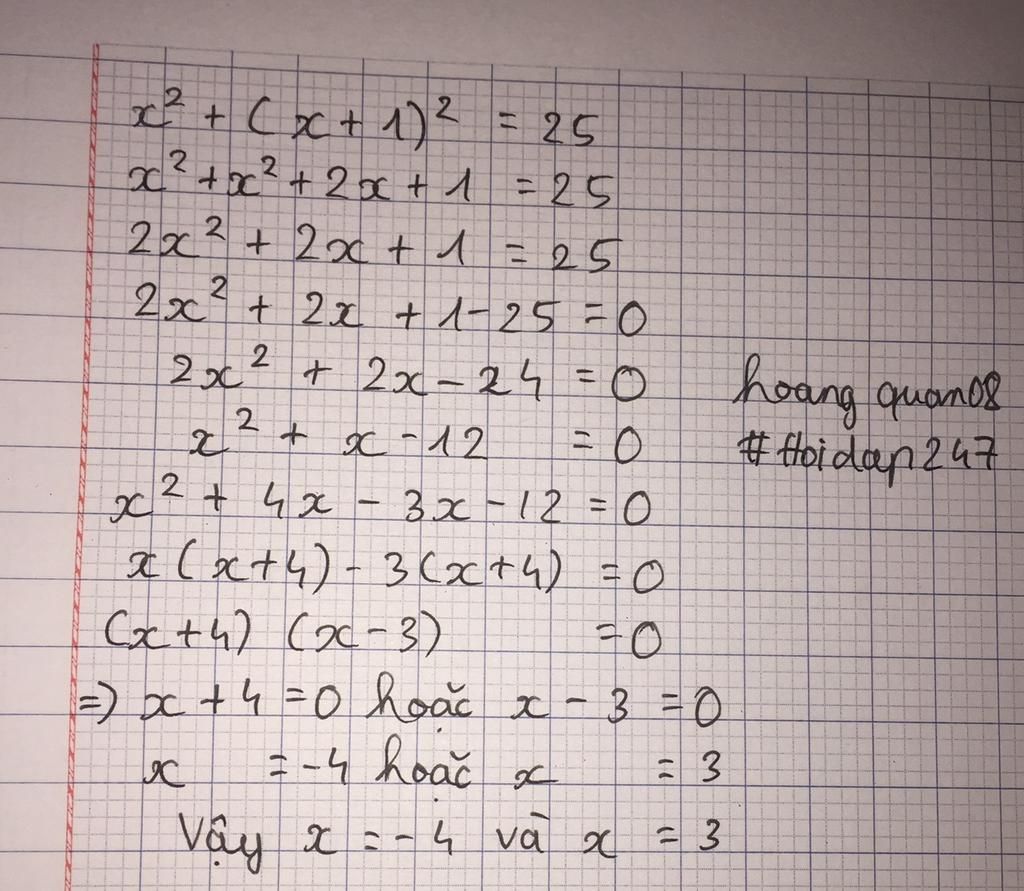 x² + (x + 1)² = 25
x² + x² + 2x + 1 = 25
2x² + 2x + 1 = 25
2x² + 2x + 1 - 25 = 0
2x² + 2x - 24 = 0
x² + x - 12 = 0
x² + 4x - 3x - 12 = 0
x(x+4) - 3(x+4) = 0
(x+4) (x-3) = 0
=) x + 4 = 0 hoặc x - 3 = 0
x = -4 hoặc x = 3
Vậy x = -4 và x = 3
hoang quan08
#Hoidap247